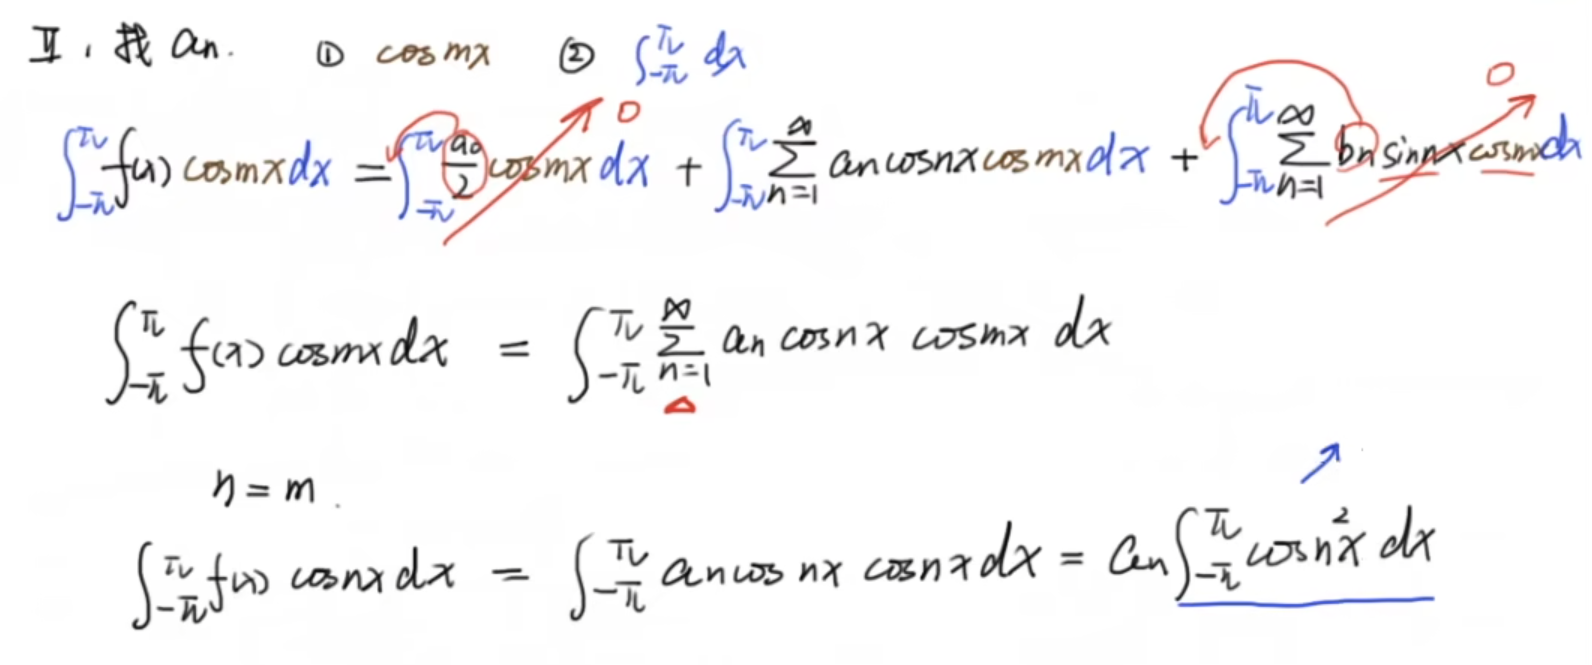 Ⅱ. 找 an. ① cosmx ② ∫_{-π}^{π} dx
∫_{-π}^{π} f(x) cosmx dx = ∫_{-π}^{π} a₀/2 cosmx dx + ∫_{-π}^{π} ∑_{n=1}^{∞} an cosnx cosmx dx + ∫_{-π}^{π} ∑_{n=1}^{∞} bn sinnx cosmx dx
0 0
∫_{-π}^{π} f(x) cosmx dx = ∫_{-π}^{π} ∑_{n=1}^{∞} an cosnx cosmx dx
n = m.
∫_{-π}^{π} f(x) cosnx dx = ∫_{-π}^{π} an cos nx cosnx dx = an ∫_{-π}^{π} cos²nx dx